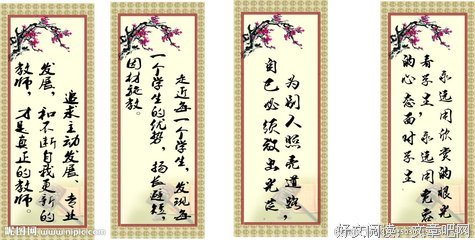 追求主动发展、专业
发展，和不断自我更新的
教师，才是真正的教师。
走近每一个学生，发现每
一个学生的优势，扬长避短，
因材施教。
为别人照亮道路，
自己必须放出光芒
永远用欣赏的眼光
看学生，永远用宽容
的心态面对学生
昵图网 www.nipic.com